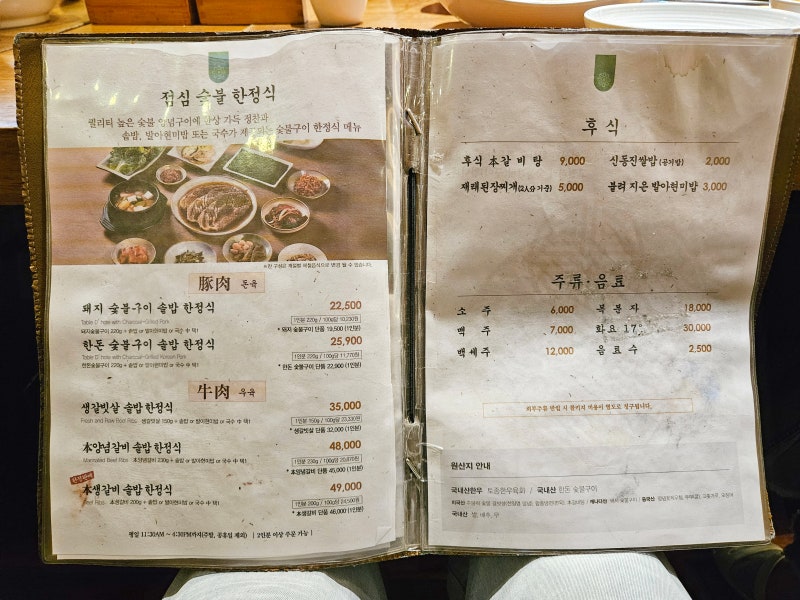 점심 숯불 한정식
퀄리티 높은 숯불 양념구이에 한상 가득 정찬과
솥밥, 발아현미밥 또는 국수가 제공되는 숯불구이 한정식 메뉴
豚肉 돈육
돼지 숯불구이 솥밥 한정식 22,500
1인분 220g / 100g당 10,230원
돼지숯불구이 220g + 솥밥 or 발아현미밥 or 국수 中 택1
* 돼지 숯불구이 단품 19,500 (1인분)
한돈 숯불구이 솥밥 한정식 25,900
1인분 220g / 100g당 11,770원
한돈숯불구이 220g + 솥밥 or 발아현미밥 or 국수 中 택1
* 한돈 숯불구이 단품 22,900 (1인분)
牛肉 우육
생갈빗살 솥밥 한정식 35,000
1인분 150g / 100g당 23,330원
생갈빗살 150g + 솥밥 or 발아현미밥 or 국수 中 택1
* 생갈빗살 단품 32,000 (1인분)
本양념갈비 솥밥 한정식 48,000
1인분 230g / 100g당 20,870원
Marinated Beef Ribs 本양념갈비 230g + 솥밥 or 발아현미밥 or 국수 中 택1
* 本양념갈비 단품 45,000 (1인분)
本생갈비 솥밥 한정식 49,000
1인분 200g / 100g당 24,500원
Beef Ribs 本생갈비 200g + 솥밥 or 발아현미밥 or 국수 中 택1
* 本생갈비 단품 46,000 (1인분)
평일 11:30AM ~ 4:30PM까지(주말, 공휴일 제외) | 2인분 이상 주문 가능 |
후식
후식 本갈비탕 9,000 신동진쌀밥 (공기밥) 2,000
재래된장찌개 (2人分 기준) 5,000 불려 지은 발아현미밥 3,000
주류·음료
소주 6,000 복분자 18,000
맥주 7,000 화요 17° 30,000
백세주 12,000 음료수 2,500
외부주류 반입 시 콜키지 비용이 별도로 청구됩니다.
원산지 안내
국내산한우 토종한우육회 / 국내산 한돈 숯불구이
국내산 쌀, 배추, 무